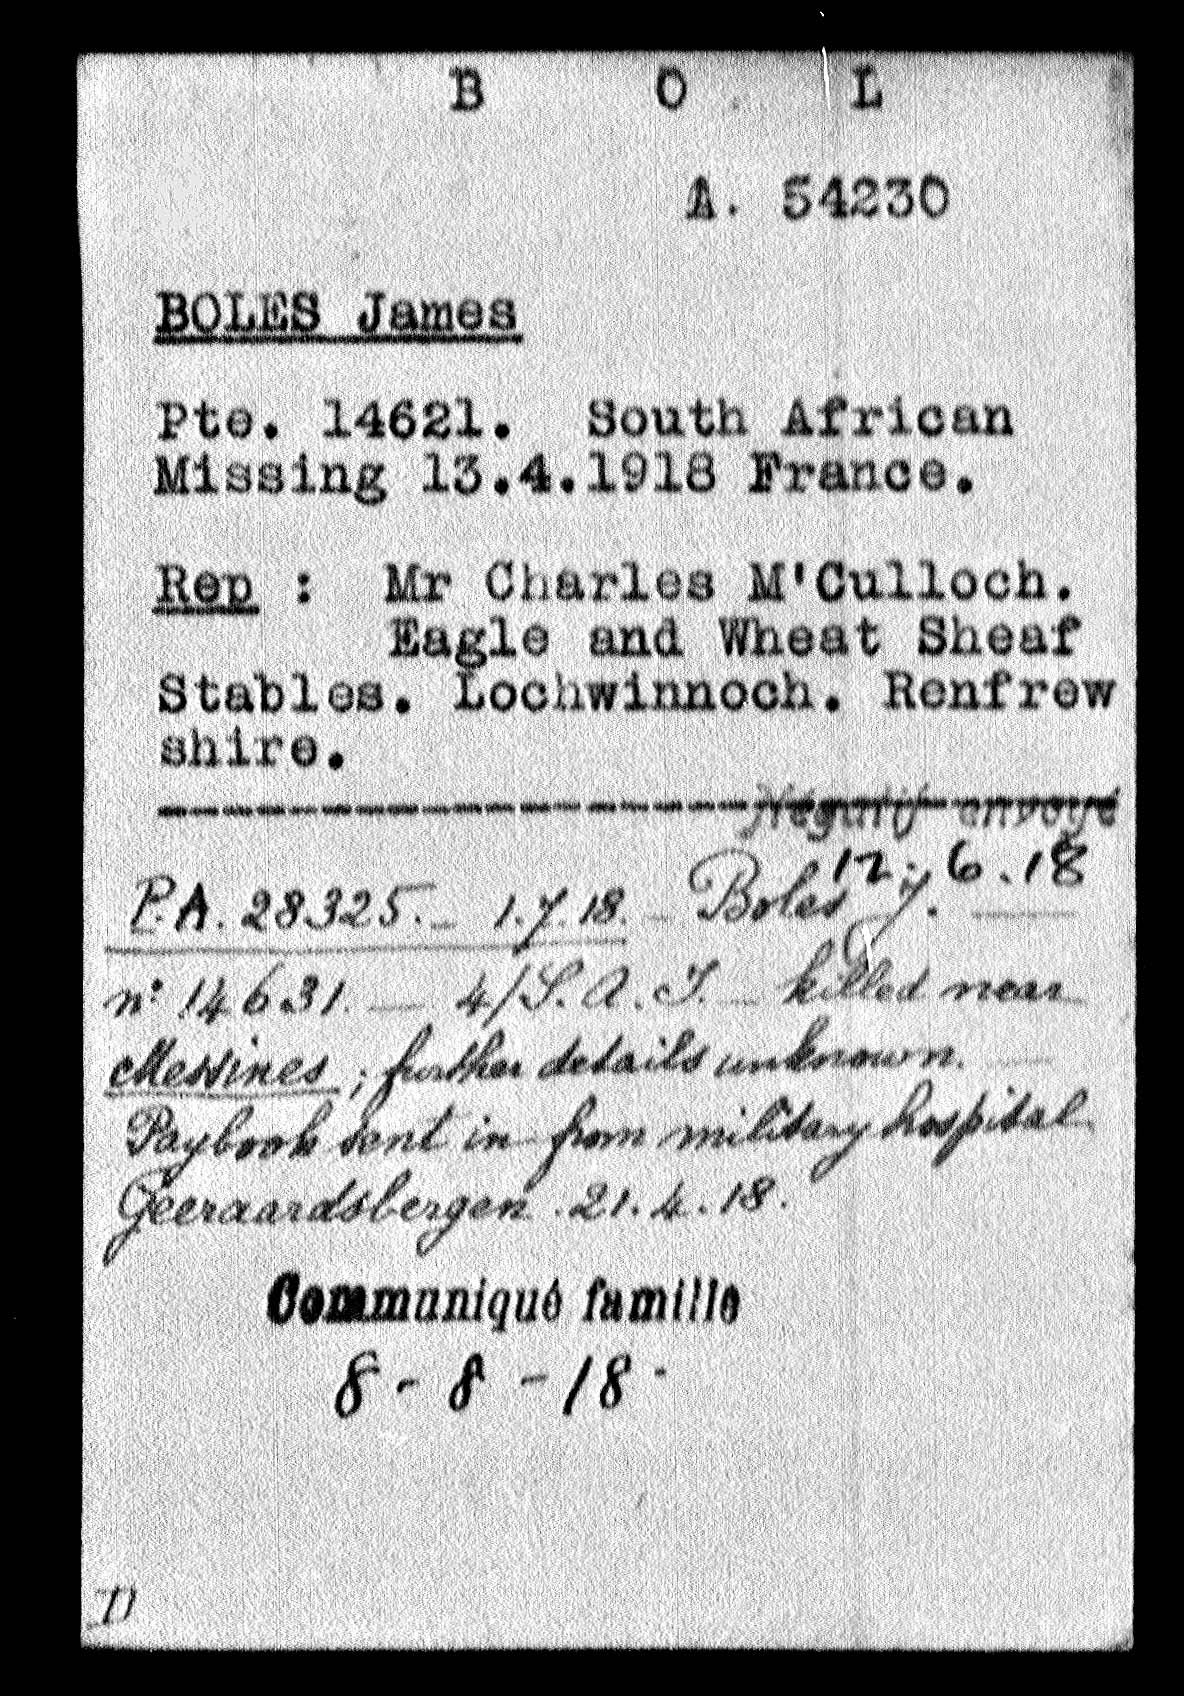 B O L
A. 54230
BOLES James
Pte. 14621. South African
Missing 13.4.1918 France.
Rep : Mr Charles M'Culloch.
Eagle and Wheat Sheaf
Stables. Lochwinnoch. Renfrew
shire.
Négatif envoyé
12.6.18
P.A. 28325.- 1.7.18. - Boles J. -
n° 14631. - 4/S.A.I. - killed near
Messines ; further details unknown. -
Paybook sent in from military hospital
Geeraardsbergen 21.4.18.
Communiqué famille
8-8-18.
D